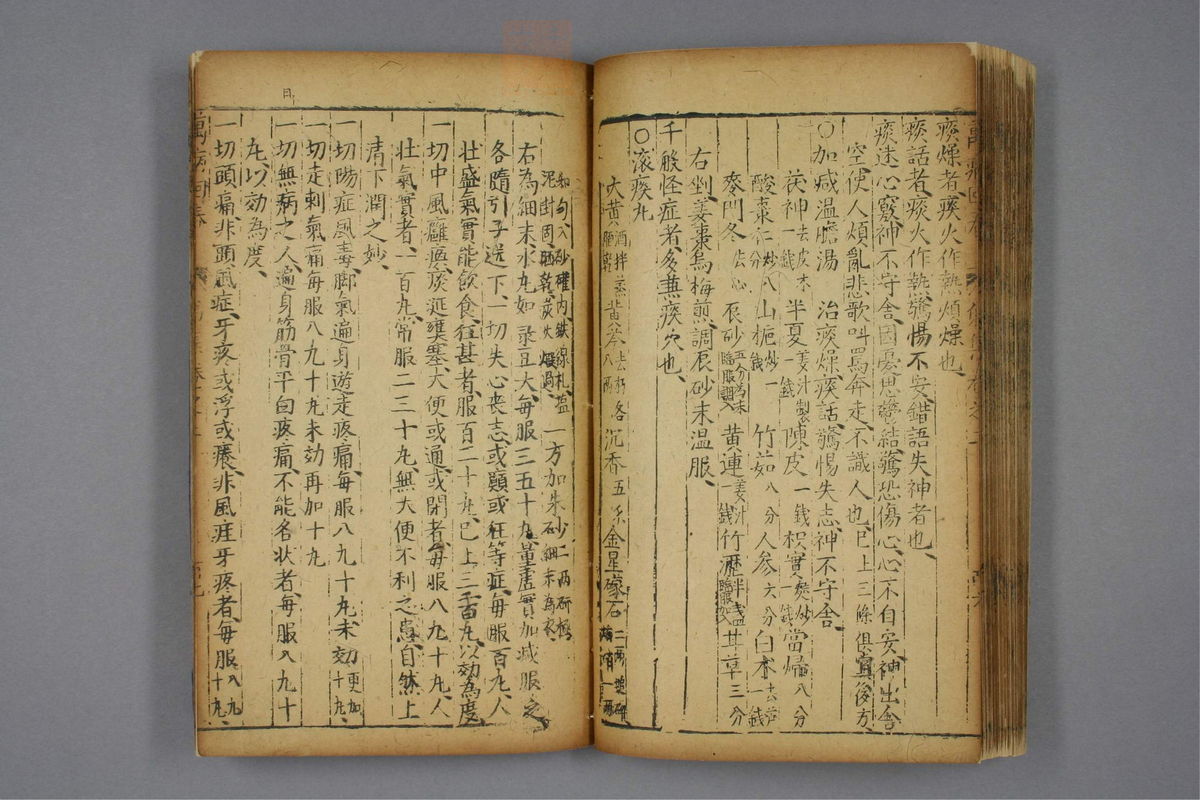 痰燥者痰火作熱煩燥也
痰話者痰火作熱驚惕不安錯語失神者也
痰迷心竅神不守舍因憂思鬱結驚恐傷心心不自安神出舍
空使人煩亂悲歌叫罵奔走不識人也已上三條俱宜後方
○加減温膽湯 治痰燥痰話驚惕失志神不守舍
茯神去皮木一錢 半夏一錢姜汁製 陳皮一錢 枳實一錢麩炒 當㷌八分
酸棗仁炒八分 山梔炒一錢 竹茹八分 人參六分 白术一錢去蘆
麥門冬去心 辰砂五分為末臨服調入 黄連姜汁一錢 竹瀝半盞臨服入 甘草三分
右剉姜棗烏梅煎調辰砂末温服
千般怪症者多兼痰穴也
○滚痰丸
大黄酒拌蒸晒乾 黄芩去朽八兩各 沉香五 金星礞石二兩
和勻入砂確內鐵線札塩泥封固晒乾炭火煅過 一方加朱砂二兩研極細末為衣
右為細末水丸如菉豆大每服三五十丸量虛實加減服之
各隨引子送下一切失心喪志或顛或狂等症每服百丸人
壯盛氣實能飲食狂甚者服百二十丸已上三百丸以効為度
一切中風癱瘓痰涎壅塞大便或通或閉者每服八九十丸人
壯氣實者一百丸常服二三十丸無大便不利之患自然上
清下潤之妙
一切陽症風毒脚氣遍身遊走疼痛每服八九十丸未効便加十丸
一切走刺氣痛每服八九十丸未効再加十丸
一切無病之人遍身筋骨平白疼痛不能名状者每服八九十
丸以効為度
一切頭痛非頭風症牙疼或浮或癢非風疰牙疼者每服八九十丸